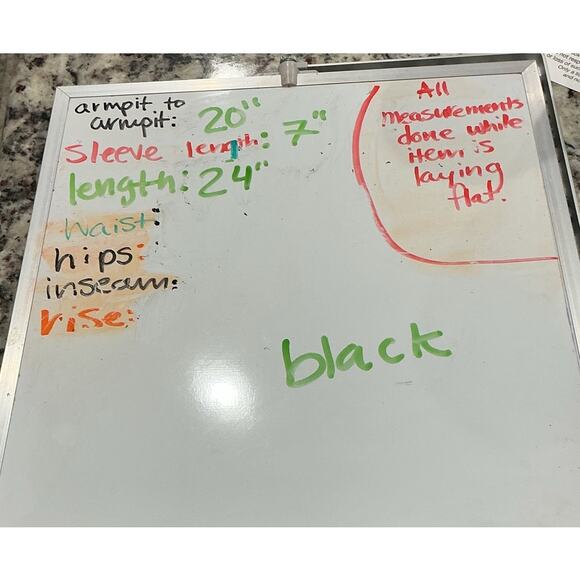 armpit to
armpit: 20"
sleeve length: 7"
length: 24"
waist:
hips:
inseam:
rise:
All
measurements
done while
item is
laying
flat.
black